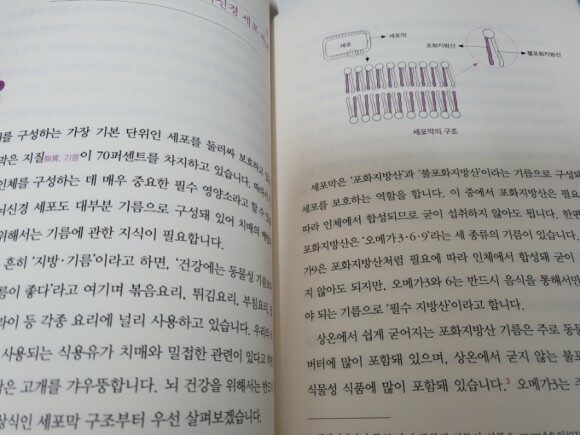 뇌신경 세포
를 구성하는 가장 기본 단위인 세포를 둘러싸 보호하고
막은 지질脂質, 기름이 70퍼센트를 차지하고 있습니다. 따라서
인체를 구성하는 데 매우 중요한 필수 영양소라고 할 수
뇌신경 세포도 대부분 기름으로 구성돼 있어 치매의 예방
위해서는 기름에 관한 지식이 필요합니다.
흔히 '지방·기름'이라고 하면, '건강에는 동물성 기름보다
름이 좋다'라고 여기며 볶음요리, 튀김요리, 부침요리,
라이 등 각종 요리에 널리 사용하고 있습니다. 우리의
사용되는 식용유가 치매와 밀접한 관련이 있다고 하면
은 고개를 갸우뚱합니다. 뇌 건강을 위해서는 반드시
상식인 세포막 구조부터 우선 살펴보겠습니다.
세포
세포막
포화지방산
불포화지방산
세포막의 구조
세포막은 '포화지방산'과 '불포화지방산'이라는 기름으로 구성돼
세포를 보호하는 역할을 합니다. 이 중에서 포화지방산은 필요
따라 인체에서 합성되므로 굳이 섭취하지 않아도 됩니다. 한편
포화지방산은 '오메가3·6·9'라는 세 종류의 기름이 있습니다.
가9은 포화지방산처럼 필요에 따라 인체에서 합성돼 굳이
지 않아도 되지만, 오메가3와 6는 반드시 음식을 통해서만
야 되는 기름으로 '필수 지방산'이라고 합니다.
상온에서 쉽게 굳어지는 포화지방산 기름은 주로 동물
버터에 많이 포함돼 있으며, 상온에서 굳지 않는 불포
식물성 식품에 많이 포함돼 있습니다.3 오메가3는 주